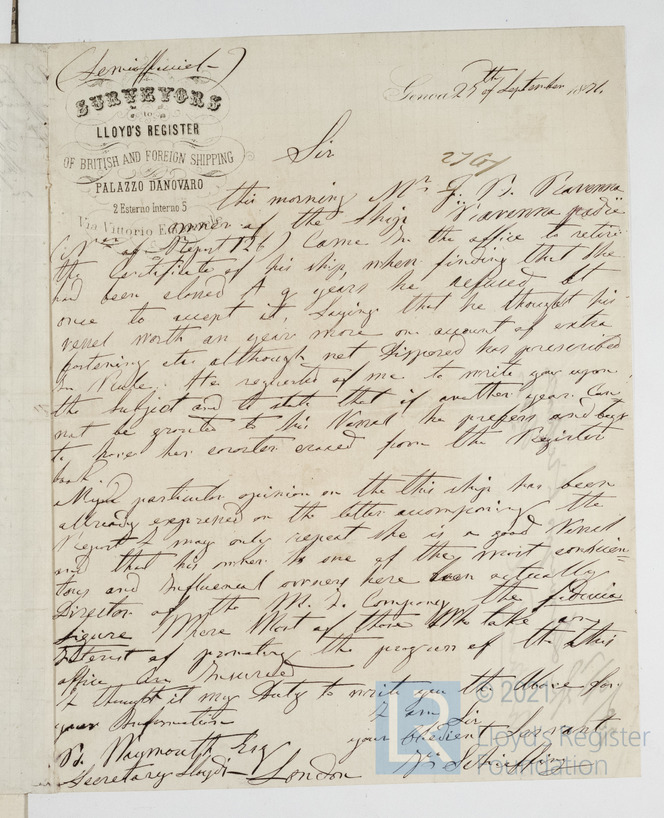 (Semiofficial)
SURVEYORS
to
LLOYD'S REGISTER
OF BRITISH AND FOREIGN SHIPPING
PALAZZO DANOVARO
2 Esterno interno 5
Via Vittorio
Genoa 25th of September 1876.
Sir
this morning Mr. J. B. Ravenna
owner of the ship Ravenna
of Report 126) came in the office to retire
the Certificate of his ship, when finding that She
had been classed A 9 years he refused at
once to accept it, Saying that he thought his
vessel worth an year more on account of extra
fastening etc although not disposed has prescribed
in Rule. He requested of me to write you upon
the subject and to state that if another year can
not be granted to his Vessel he prefers and begs
to have her erased from the Register
book.
My particular opinion on the this ship has been
allready expressed on the letter accompaning the
Report I may only repeat she is a good Vessel
and that his owner is one of the most conscien-
tous and Influencal owners here been actually
Director of the M. I. Company the fiducia
Ligure Where Most of those who take an
interest of promoting the progress of the this
office are Insured
I thought it my Duty to write you the above for
your Information
I am Sir
your Obedient Servant
B. Waymouth Esq
Secretary Lloyd's London
© 2021
LR
Lloyd's Register
Foundation